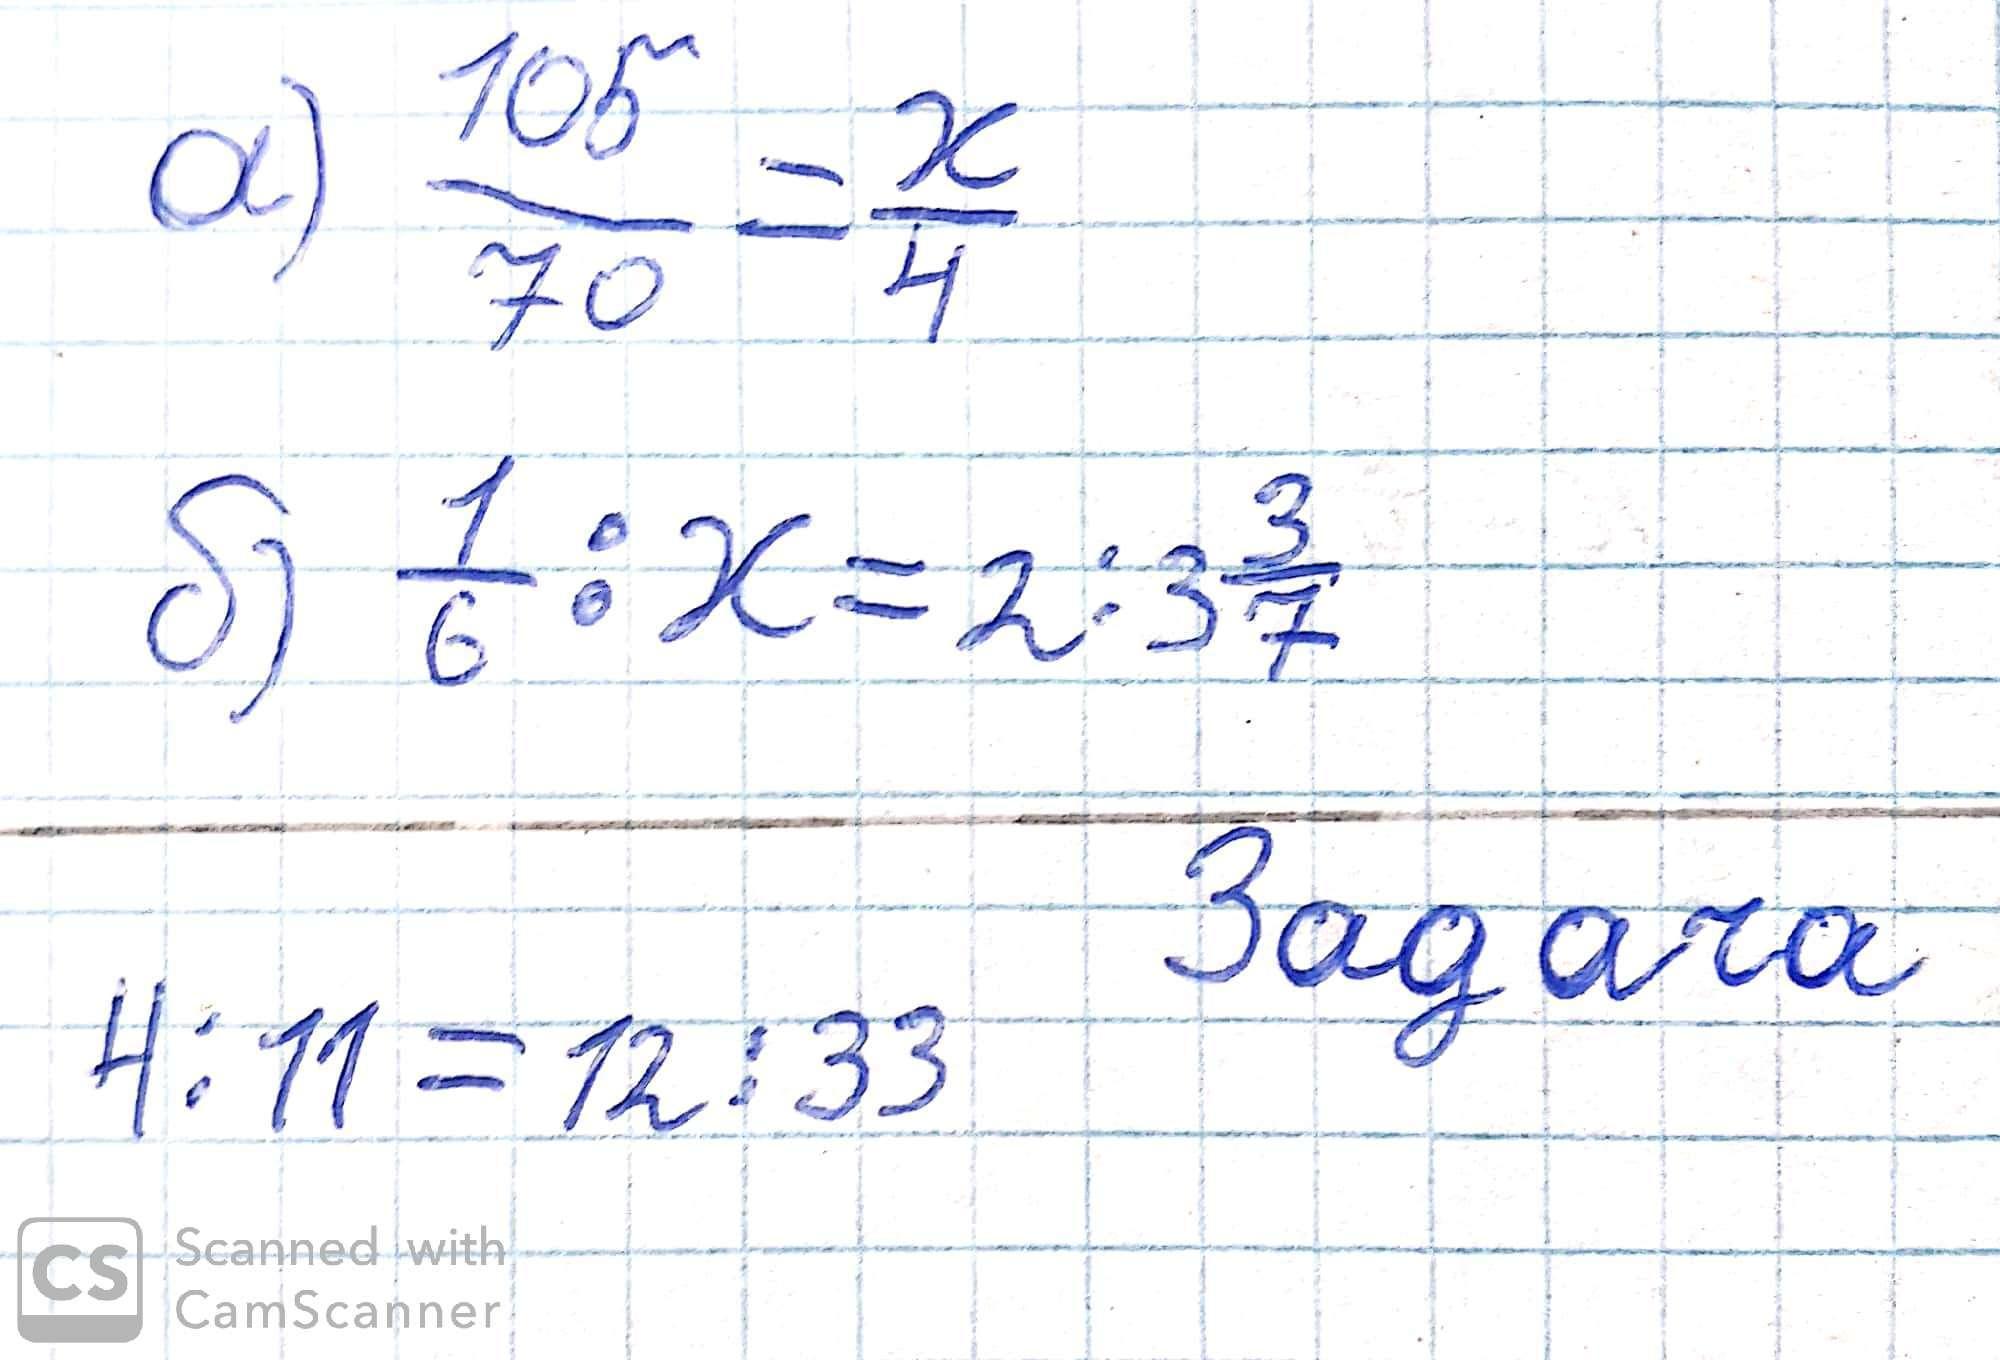 а) 105/70 = x/4
б) 1/6 : x = 2 : 3 3/7
Задача
4 : 11 = 12 : 33
CS Scanned with
CamScanner